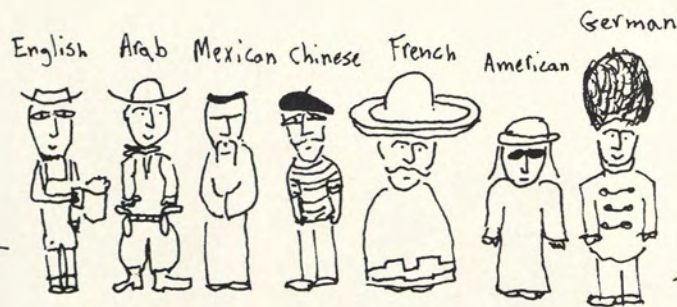 English Arab Mexican Chinese French American German